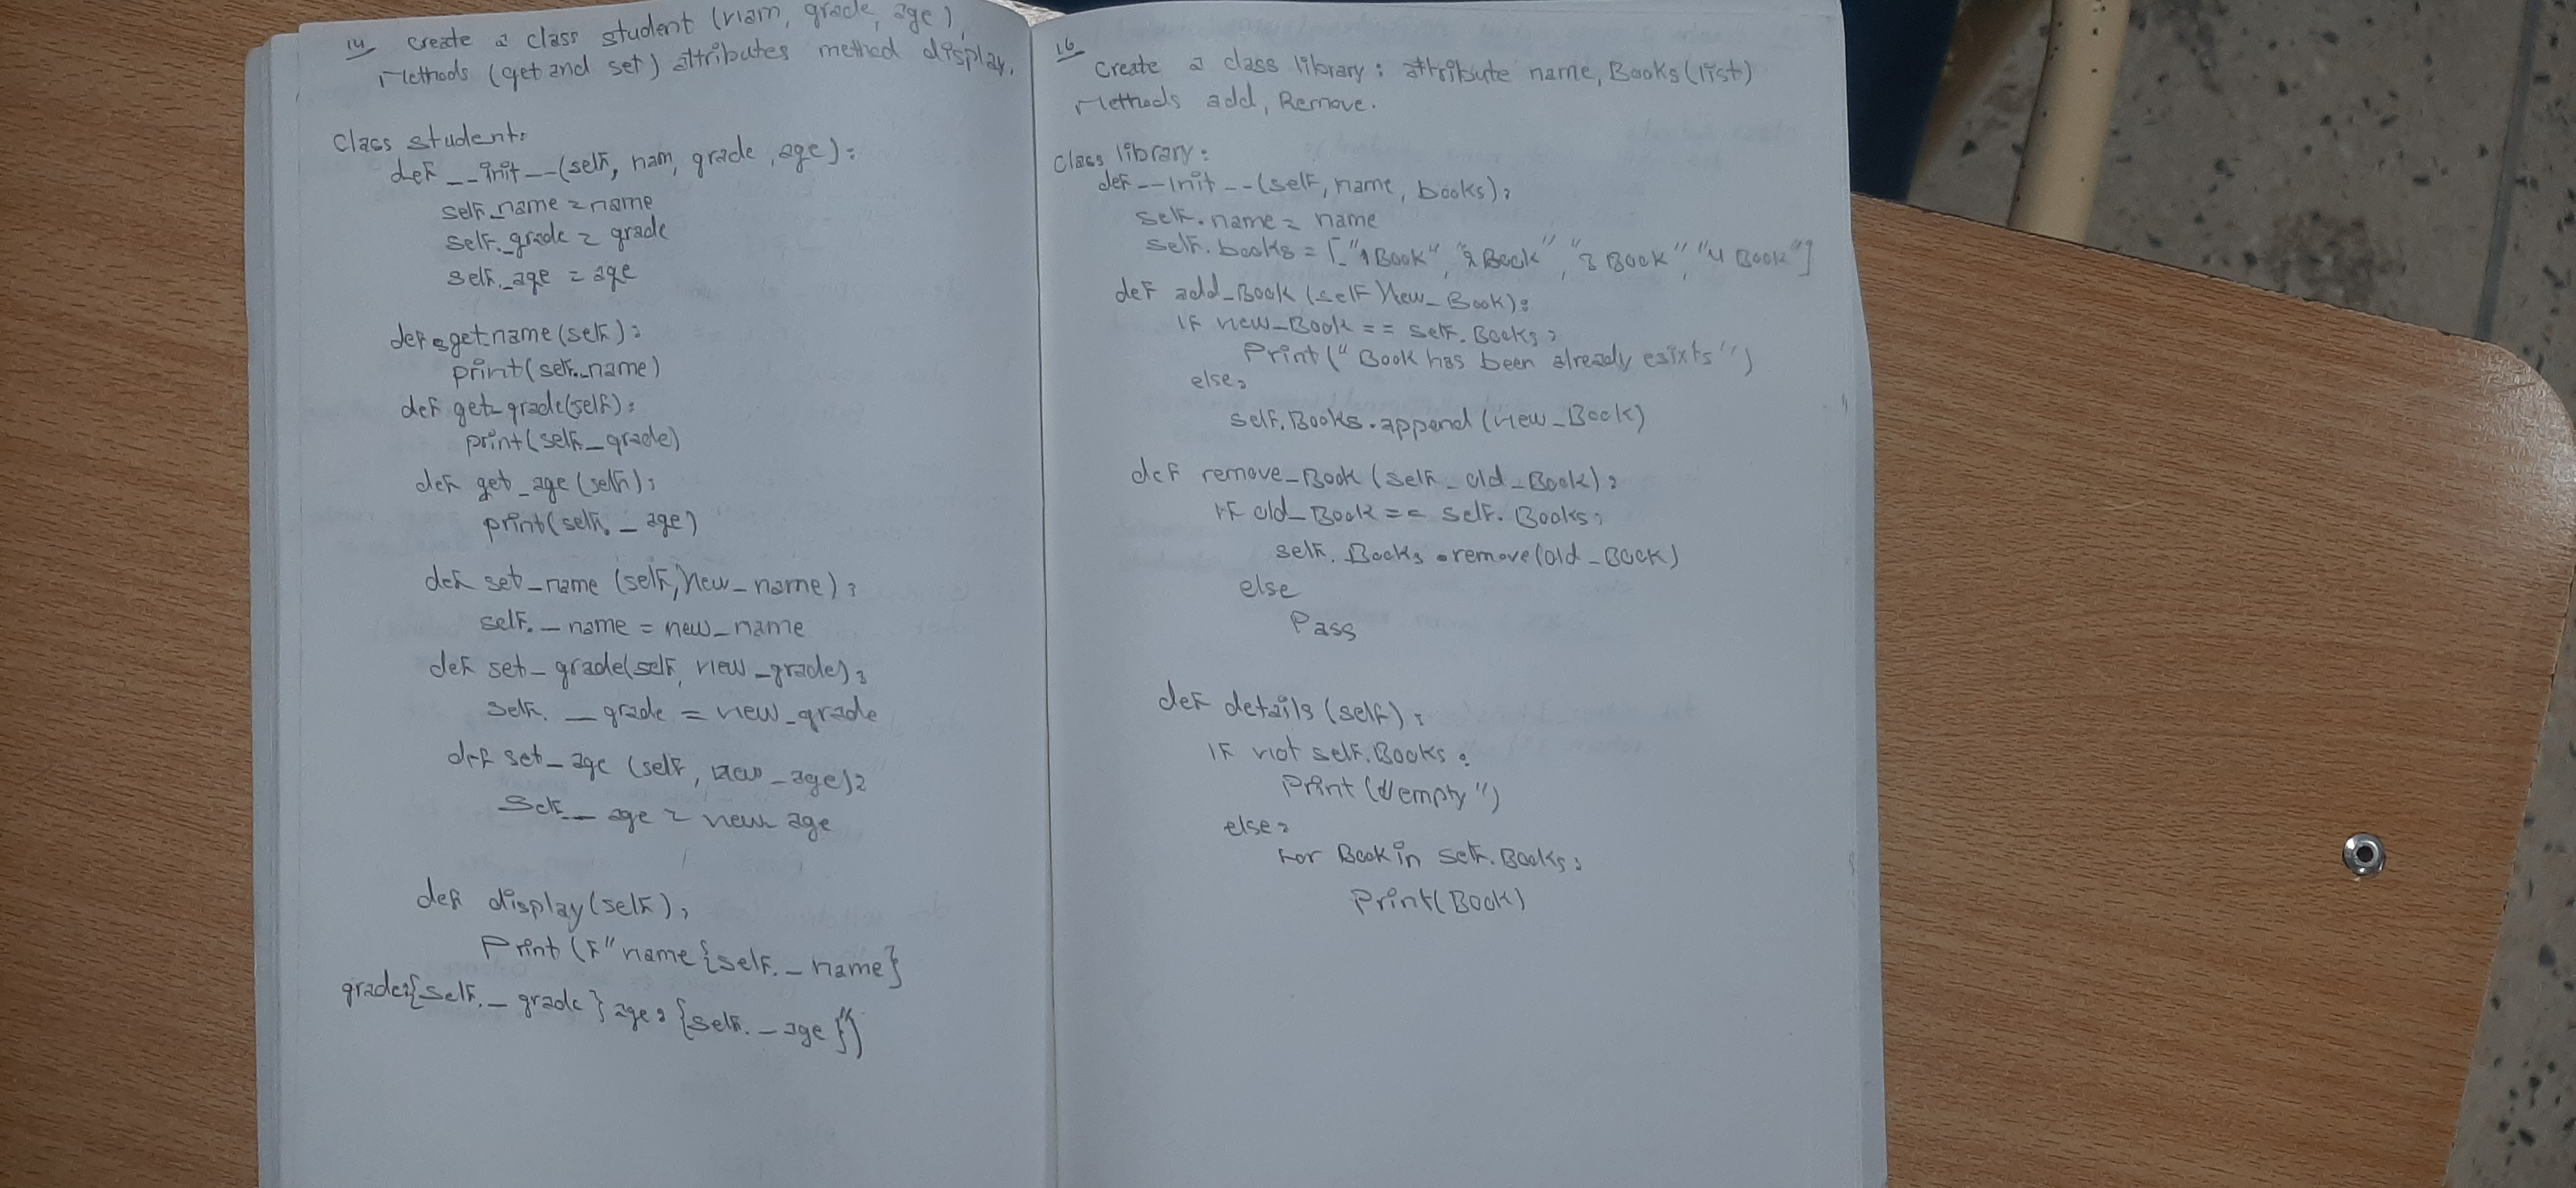 14 create a class student (nam, grade, age)
Methods (get and set) attributes method display.
Class student:
def __init__(self, nam, grade, age):
self._name = name
self._grade = grade
self._age = age
def getname(self):
print(self._name)
def get_grade(self):
print(self._grade)
def get_age(self):
print(self._age)
def set_name (self, new_name):
self._name = new_name
def set_grade(self, new_grade):
self._grade = new_grade
def set_age (self, new_age):
self._age = new age
def display(self):
print (f" name{self._name}
grade:{self._grade} age:{self._age}")
16 create a class library: attribute name, Books(list)
Methods add, Remove.
Class library:
def __init__(self, name, books):
self.name = name
self.books = ["1Book", "2Book", "3Book", "4Book"]
def add_Book (self, new_Book):
if new_Book == self.Books:
print("Book has been already esixts")
else:
self.Books.append(new_Book)
def remove_Book (self_old_Book):
if old_Book == self.Books:
self.Books.remove(old_Book)
else
Pass
def details (self):
if not self.Books:
print("empty")
else:
for Book in self.Books:
print(Book)